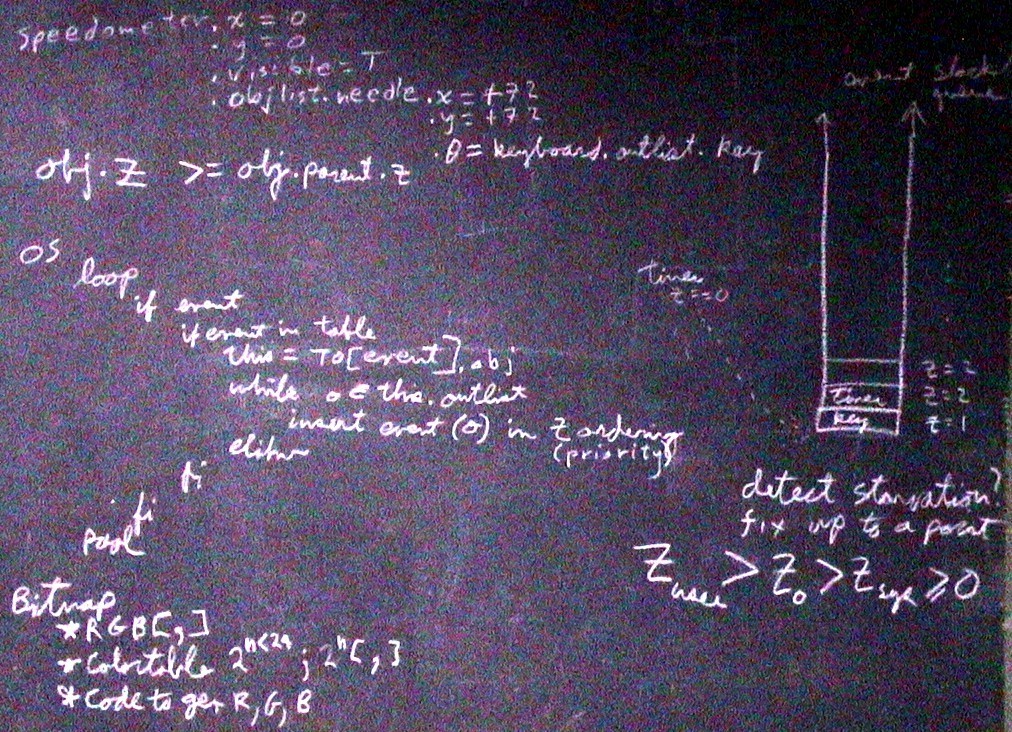 speedometer. x = 0
. y = 0
. visible = T
. objlist.needle.x = +72
.y = +72
.θ = keyboard.outlist.key
obj.z >= obj.parent.z
OS
loop
if event
if event in table
this = TO[event].obj
while o ∈ this.outlist
insert event (o) in z ordering
(priority)
elihw
fi
fi
pool
Bitmap
* RGB[,]
* Colortable 2^n<24 ; 2^n[,]
* Code to get R, G, B
event stack
queue
timer
z==0
z=2
timer z=2
key z=1
detect starvation?
fix up to a point
Z user > Z o > Z sys ≥ 0